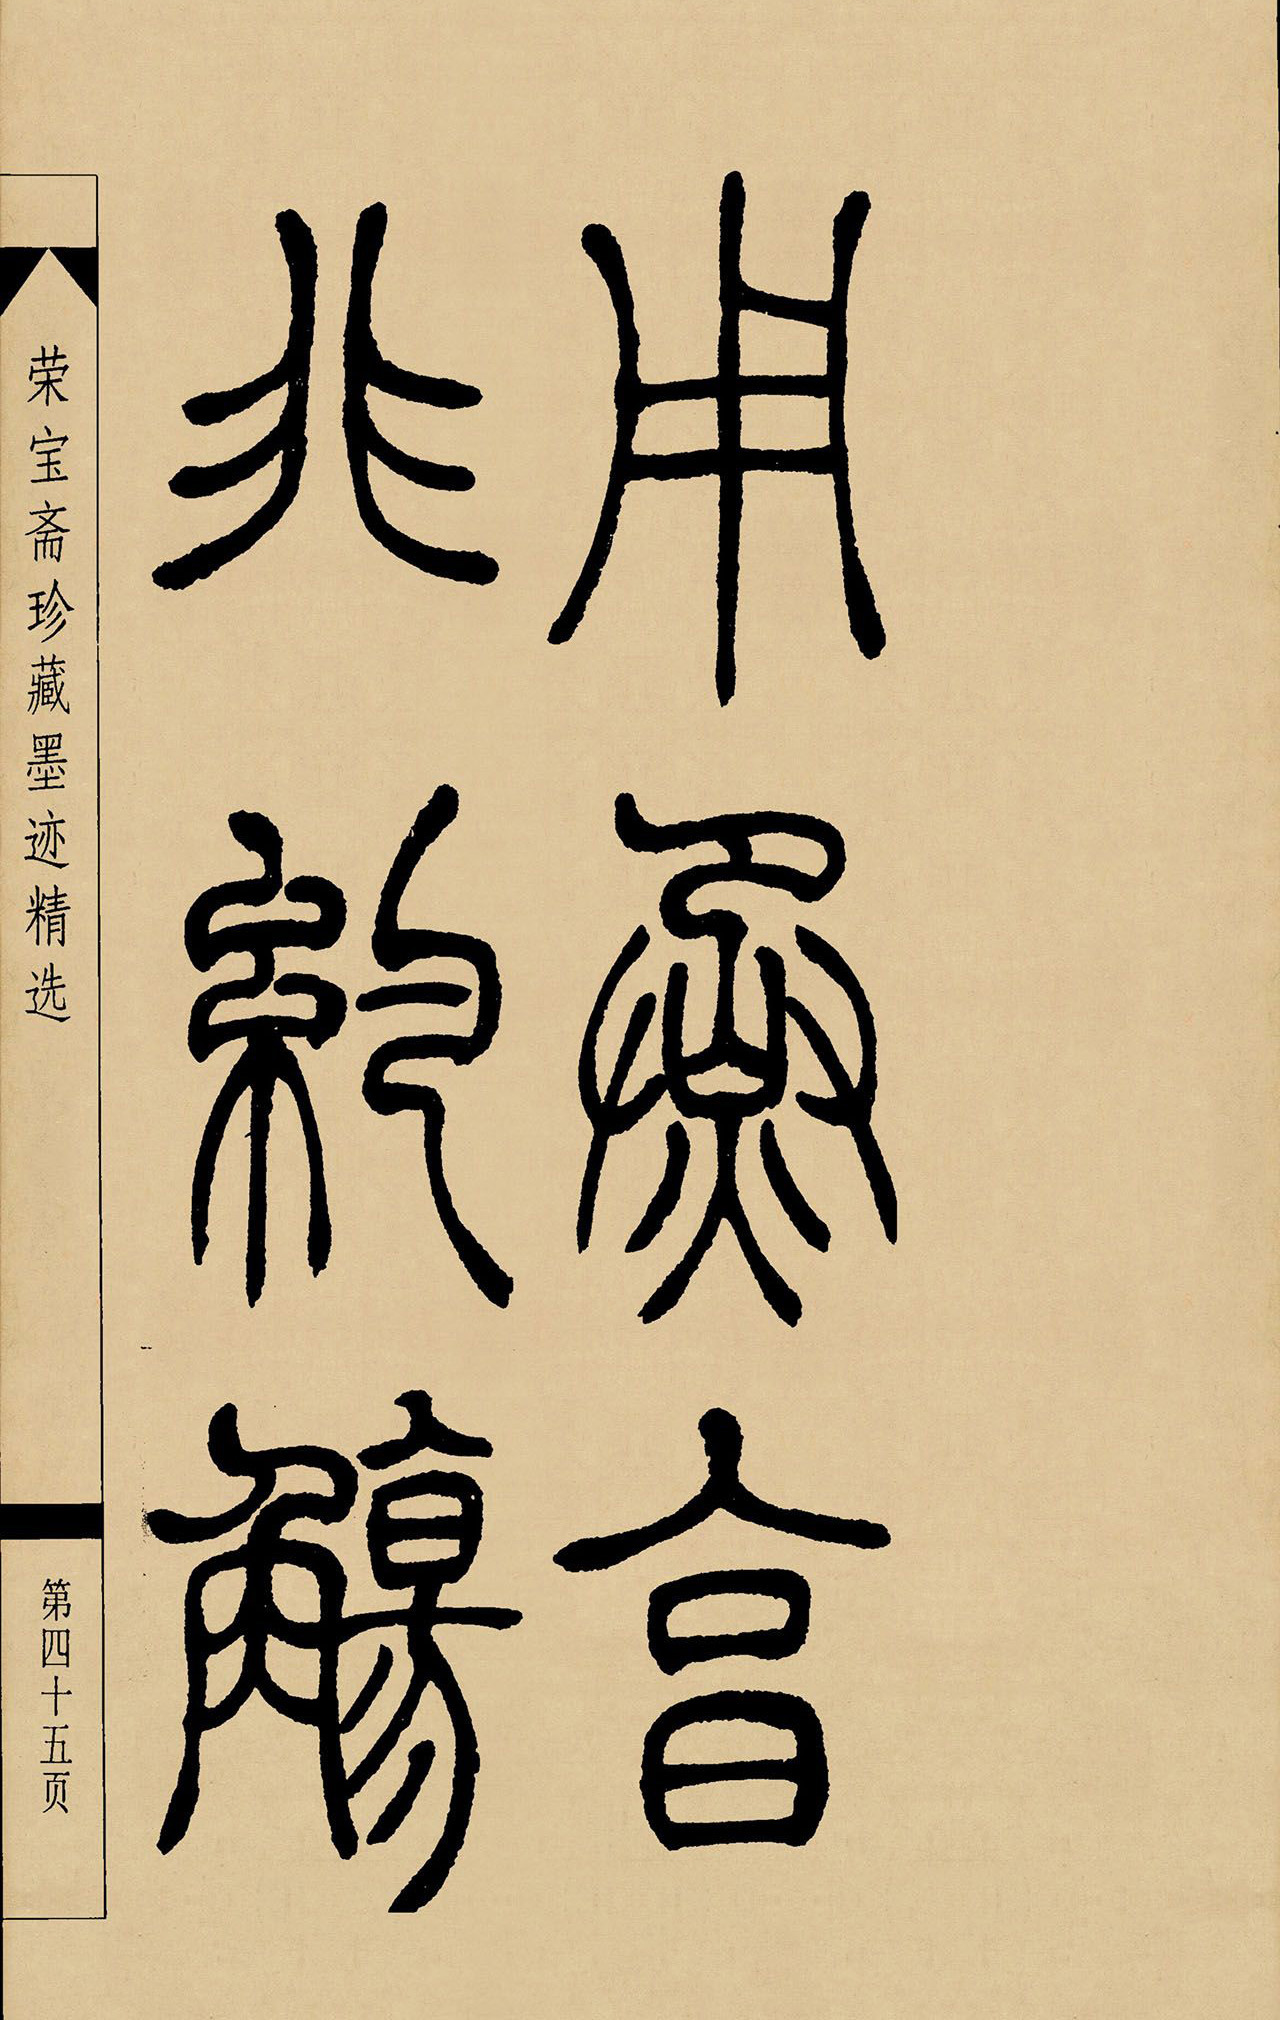 用享
非約觴
荣宝斋珍藏墨迹精选
第四十五页